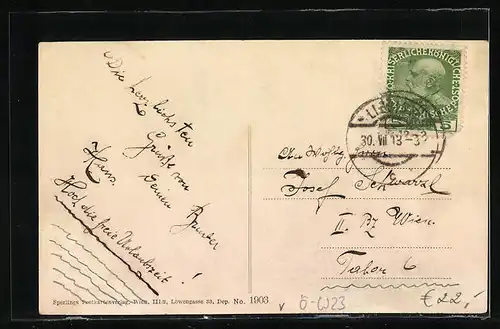 Die herzlichsten
Grüsse von
Deinem Bruder
Hans.
Hoch die freie Urlaubszeit!
KAISERLICHEKÖNIGLICHEÖSTERREICHISCHE
30. VII 13-3
An Wohlg.
Josef Schwarzl
II. Bz Wien.
Tabor 6
Sperlings Postkartenverlag, Wien, III/2, Löwengasse 33, Dep. No. 1903
v Ö-W23
€22,-